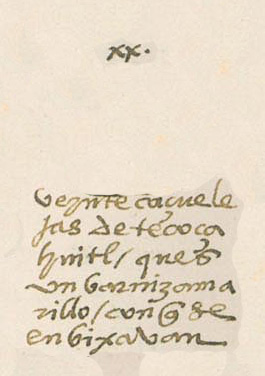 xx.
veynte caçuele
jas de tecoça
huitl / ques
vn barniz ama
rillo / con q̃ se
enbixavan